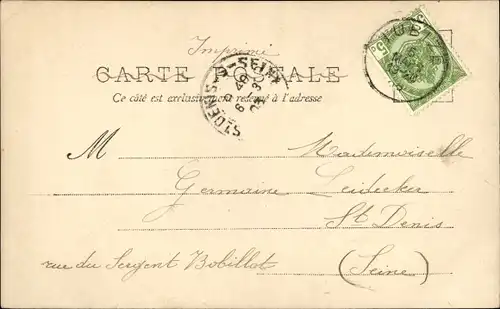 Imprimé
CARTE POSTALE
Ce côté est exclusivement réservé à l'adresse
ST DENIS-S-SEINE
M Mademoiselle
Germaine Leidecker
St Denis
rue du Sergent Bobillot (Seine)